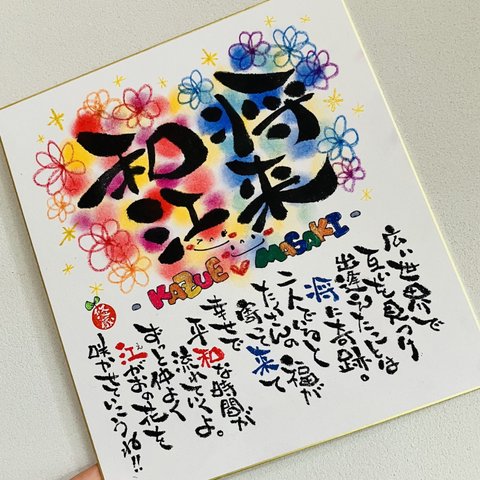 将来
和江
KAZUE ♥ MASAKI
広い世界で
互いを見つけ
出逢えたことは
将に奇跡。
二人でいると
たくさんの福が
寄って来て
幸せで
平和な時間が
流れていくよ。
ずっと仲よく
江がおの花を
咲かせていこうね!!